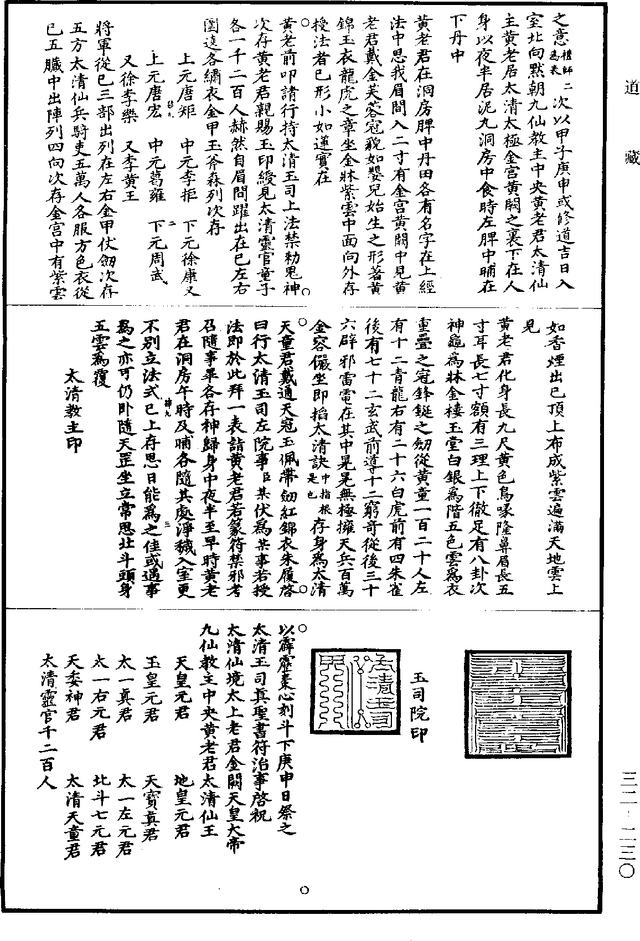 道藏
之意禮師為表二次以甲子庚申或修道吉日入
室北向默朝九仙教主中央黃老君太清仙
主黃老居太清太極金宮黃闕之裏下在人
身以夜半居泥丸洞房中食時左脾中晡在
下丹中
黃老君在洞房脾中丹田各有名字在上經
法中思我眉間入二寸有金宮黃闕中見黃
老君戴金芙蓉冠貌如嬰兒始生之形著黃
錦玉衣龍虎之章坐金牀紫雲中面向外存
授法者已形小如蓮實在
黃老前叩請行持太清玉司上法禁勑鬼神
次存黃老君親賜玉印綬見太清靈官童子
各一千二百人赫然自眉間躍出在已左右
圍遶各繡衣金甲玉斧森列次存
上元唐矩 中元李拒 下元徐康又
上元唐宏 中元葛雍 下元周武
又徐李樂 又李黃王
將軍從已三部出列在左右金甲仗劒次存
五方太清仙兵騎吏五萬人各服方色衣從
已五臟中出陣列四向次存金宮中有紫雲
如香煙出已頂上布成紫雲遍滿天地雲上
見
黃老君化身長九尺黃色鳥喙隆鼻眉長五
寸耳長七寸額有三理上下徹足有八卦次
神龜為牀金樓玉堂白銀為階五色雲為衣
重疊之冠鋒鋋之劒從黃童一百二十人左
有十二青龍右有二十六白虎前有四朱雀
後有七十二玄武前導十二窮奇從後三十
六辟邪雷電在其中晃晃無極擁天兵百萬
金容儼坐即掐太清訣中指根是也存身為太清
天童君戴通天冠玉佩帶劒紅錦衣朱履啓
曰行太清玉司左院事臣某伏為某事若授
法即於此拜一表請黃老君若篆符禁邪考
召隨事畢各存神歸身中夜半至早時黃老
君在洞房午時及晡各隨其處淨穢入室更
不別立法式已上存思日能為之佳或遇事
為之亦可仍卧隨天罡坐立常思北斗頭身
五雲為覆
太清教主印
玉司院印
以霹靂棗心刻斗下庚申日祭之
太清玉司真聖書符治事啓祝
太清仙境太上老君金闕天皇大帝
九仙教主中央黃老君太清仙王
天皇元君 地皇元君
玉皇元君 天寶真君
太一真君 太一左元君
太一右元君 北斗七元君
天委神君 太清天童君
太清靈官千二百人
三二·二三〇